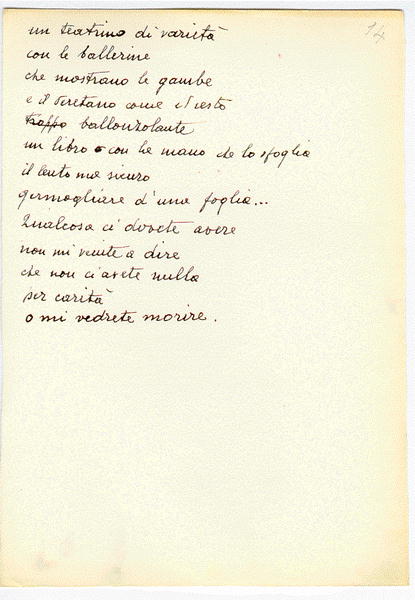 14
un teatrino di varietà
con le ballerine
che mostrano le gambe
e il deretano come il resto
troppo ballonzolante
un libro con le mano che lo sfoglia
il lento ma sicuro
germogliare d'una foglia...
Qualcosa ci dovete avere
non mi venite a dire
che non ci avete nulla
per carità
o mi vedrete morire.